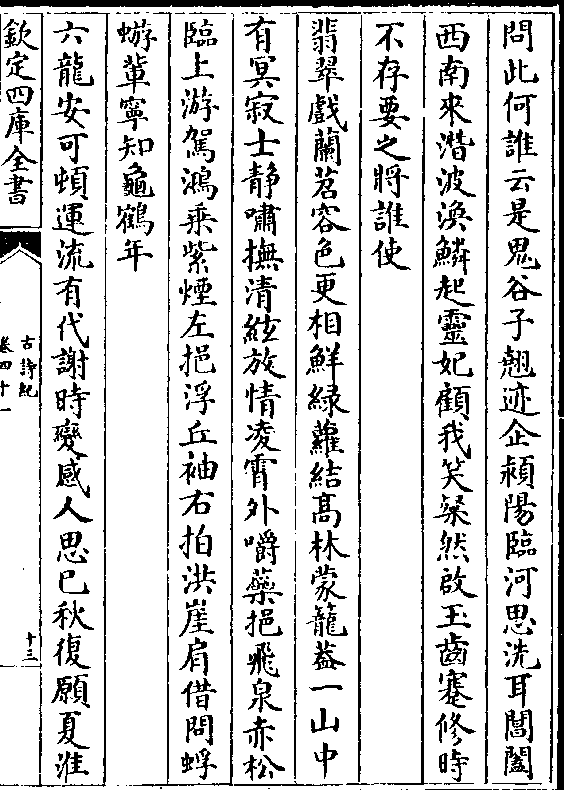 問此何誰云是鬼谷子翹迹企潁陽臨河思洗耳閶闔
西南來潛波渙鱗起靈妃顧我笑粲然啟玉齒蹇修時
不存要之將誰使
翡翠戲蘭苕容色更相鮮緑蘿結髙林蒙籠葢一山中
有冥寂士静嘯撫清絃放情凌霄外嚼藥挹飛泉赤松
臨上游駕鴻乗紫煙左挹浮丘袖右拍洪崖肩借問蜉
蝣輩寧知龜鶴年
六龍安可頓運流有代謝時變感人思巳秋復願夏淮
欽定四庫全書
古詩紀
卷四十一
十三